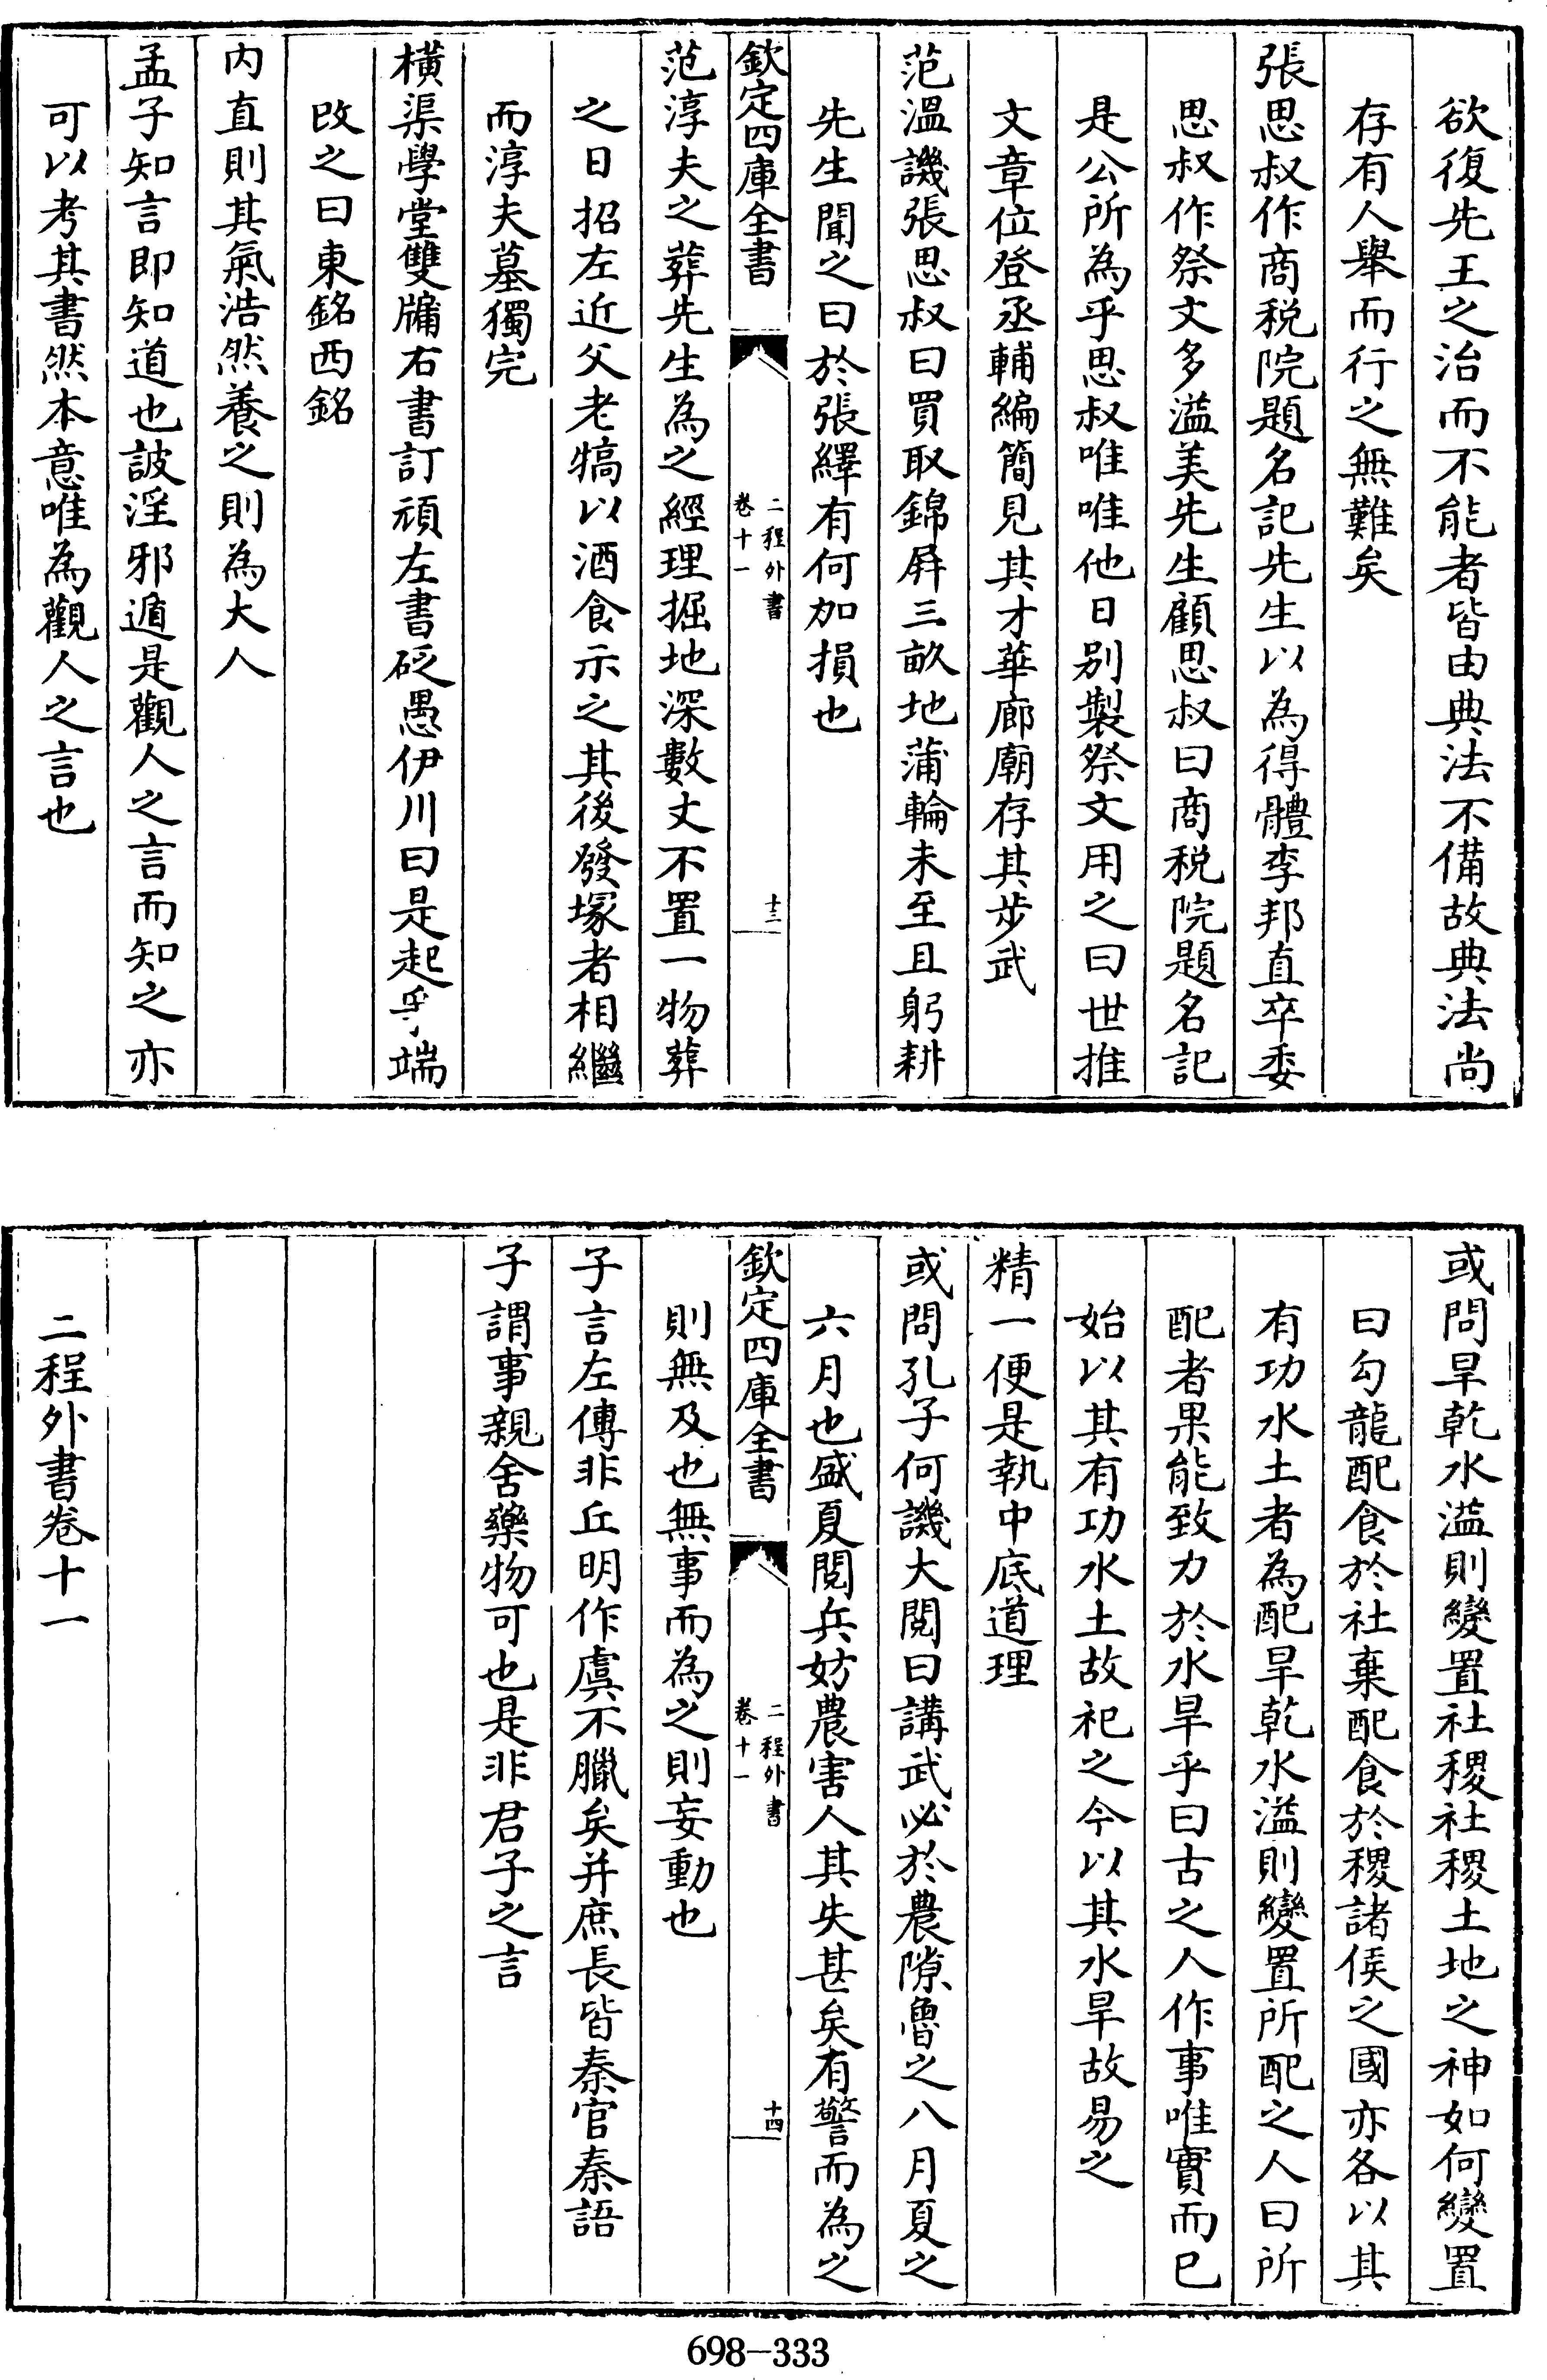 欲復先王之治而不能者皆由典法不備故典法尚
存有人舉而行之無難矣
張思叔作商税院題名記先生以為得體李邦直卒委
思叔作祭文多溢美先生顧思叔曰商税院題名記
是公所為乎思叔唯唯他日别製祭文用之曰世推
文章位登丞輔編簡見其才華廊廟存其步武
范溫譏張思叔曰買取錦屛三畝地蒲輪未至且躬耕
先生聞之曰於張繹有何加損也
欽定四庫全書
二程外書
卷十一
十三
范淳夫之葬先生為之經理掘地深數丈不置一物葬
之日招左近父老犒以酒食示之其後發塚者相繼
而淳夫墓獨完
橫渠學堂雙牖右書訂頑左書砭愚伊川曰是起爭端
改之曰東銘西銘
内直則其氣浩然養之則為大人
孟子知言即知道也詖淫邪遁是觀人之言而知之亦
可以考其書然本意唯為觀人之言也
或問旱乾水溢則變置社稷社稷土地之神如何變置
曰勾龍配食於社棄配食於稷諸侯之國亦各以其
有功水土者為配旱乾水溢則變置所配之人曰所
配者果能致力於水旱乎曰古之人作事唯實而已
始以其有功水土故祀之今以其水旱故易之
精一便是執中底道理
或問孔子何譏大閱曰講武必於農隙魯之八月夏之
六月也盛夏閱兵妨農害人其失甚矣有警而為之
欽定四庫全書
二程外書
卷十一
十四
則無及也無事而為之則妄動也
子言左傳非丘明作虞不臘矣并庶長皆秦官秦語
子謂事親舍藥物可也是非君子之言
二程外書卷十一
698-333